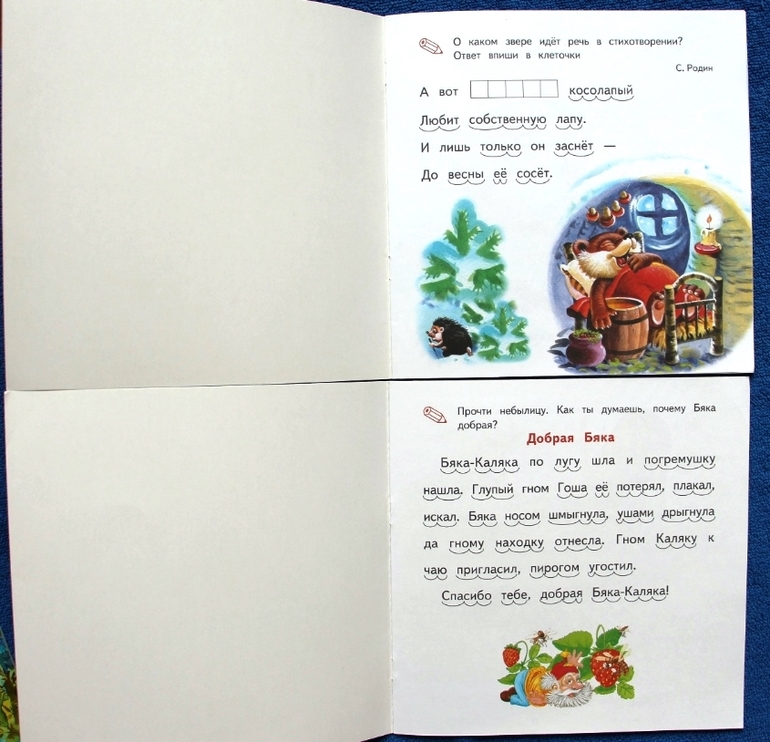 О каком звере идёт речь в стихотворении?
Ответ впиши в клеточки
С. Родин
А вот косолапый
Любит собственную лапу.
И лишь только он заснёт —
До весны её сосёт.
Прочти небылицу. Как ты думаешь, почему Бяка
добрая?
Добрая Бяка
Бяка-Каляка по лугу шла и погремушку
нашла. Глупый гном Гоша её потерял, плакал,
искал. Бяка носом шмыгнула, ушами дрыгнула
да гному находку отнесла. Гном Каляку к
чаю пригласил, пирогом угостил.
Спасибо тебе, добрая Бяка-Каляка!